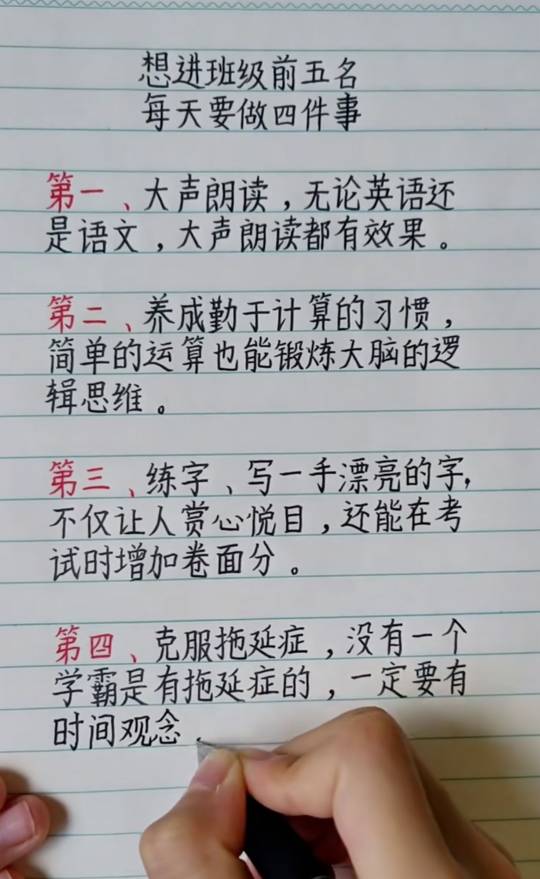 想进班级前五名
每天要做四件事
第一、大声朗读，无论英语还
是语文，大声朗读都有效果。
第二、养成勤于计算的习惯，
简单的运算也能锻炼大脑的逻
辑思维。
第三、练字、写一手漂亮的字，
不仅让人赏心悦目，还能在考
试时增加卷面分。
第四、克服拖延症，没有一个
学霸是有拖延症的，一定要有
时间观念.